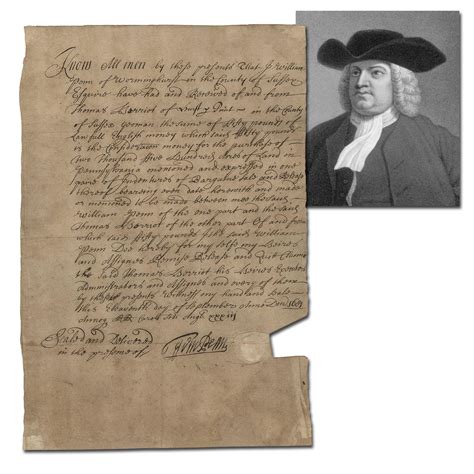 Know All men by these presents That I William
Penn of Worminghurst in the County of Sussex
Esquire have had and Received of and from
Thomas Herriot of Hurst in the County
of Sussex Yeoman the sume of Fifty pounds of
Lawfull English money which said fifty pounds
is the Consideracon money for the purchase of
two Thousand five Hundred Acres of Land in
Pennsylvania mentioned and expressed in one
paire of Indentures of Bargaine Sale and Release
thereof bearing even date herewith and made
or mentioned to be made between mee the said
William Penn of the one part and the said
Thomas Herriot of the other part Of and from
which said fifty pounds I the said William
Penn Doe hereby for my selfe my Heires
and Assignes Remise Release and Quit Claime
the said Thomas Herriot his Heires Executors
Administrators and Assignes and every of them
by these presents Witness my hand and Seale
this Eleventh day of September Anno Dm
Sealed and Delivered
in the presence of
Wm Penn